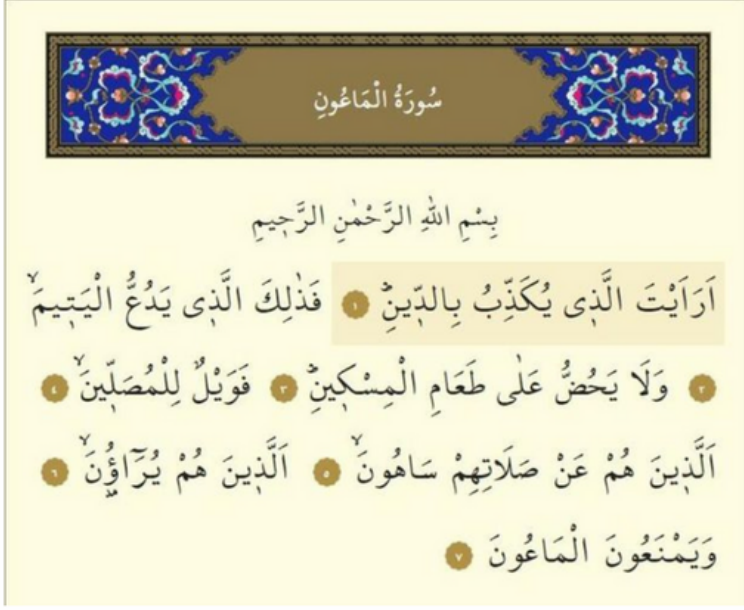 سُورَةُ الْمَاعُونِ
بِسْمِ اللّٰهِ الرَّحْمٰنِ الرَّح۪يمِ
اَرَاَيْتَ الَّذ۪ى يُكَذِّبُ بِالدّ۪ينِۜ ﴿١﴾ فَذٰلِكَ الَّذ۪ى يَدُعُّ الْيَت۪يمَۙ
﴿٢﴾ وَلَا يَحُضُّ عَلٰى طَعَامِ الْمِسْك۪ينِۜ ﴿٣﴾ فَوَيْلٌ لِلْمُصَلّ۪ينَۙ ﴿٤﴾
اَلَّذ۪ينَ هُمْ عَنْ صَلَاتِهِمْ سَاهُونَۙ ﴿٥﴾ اَلَّذ۪ينَ هُمْ يُرَٓاؤُ۫نَۙ ﴿٦﴾
وَيَمْنَعُونَ الْمَاعُونَ ﴿٧﴾